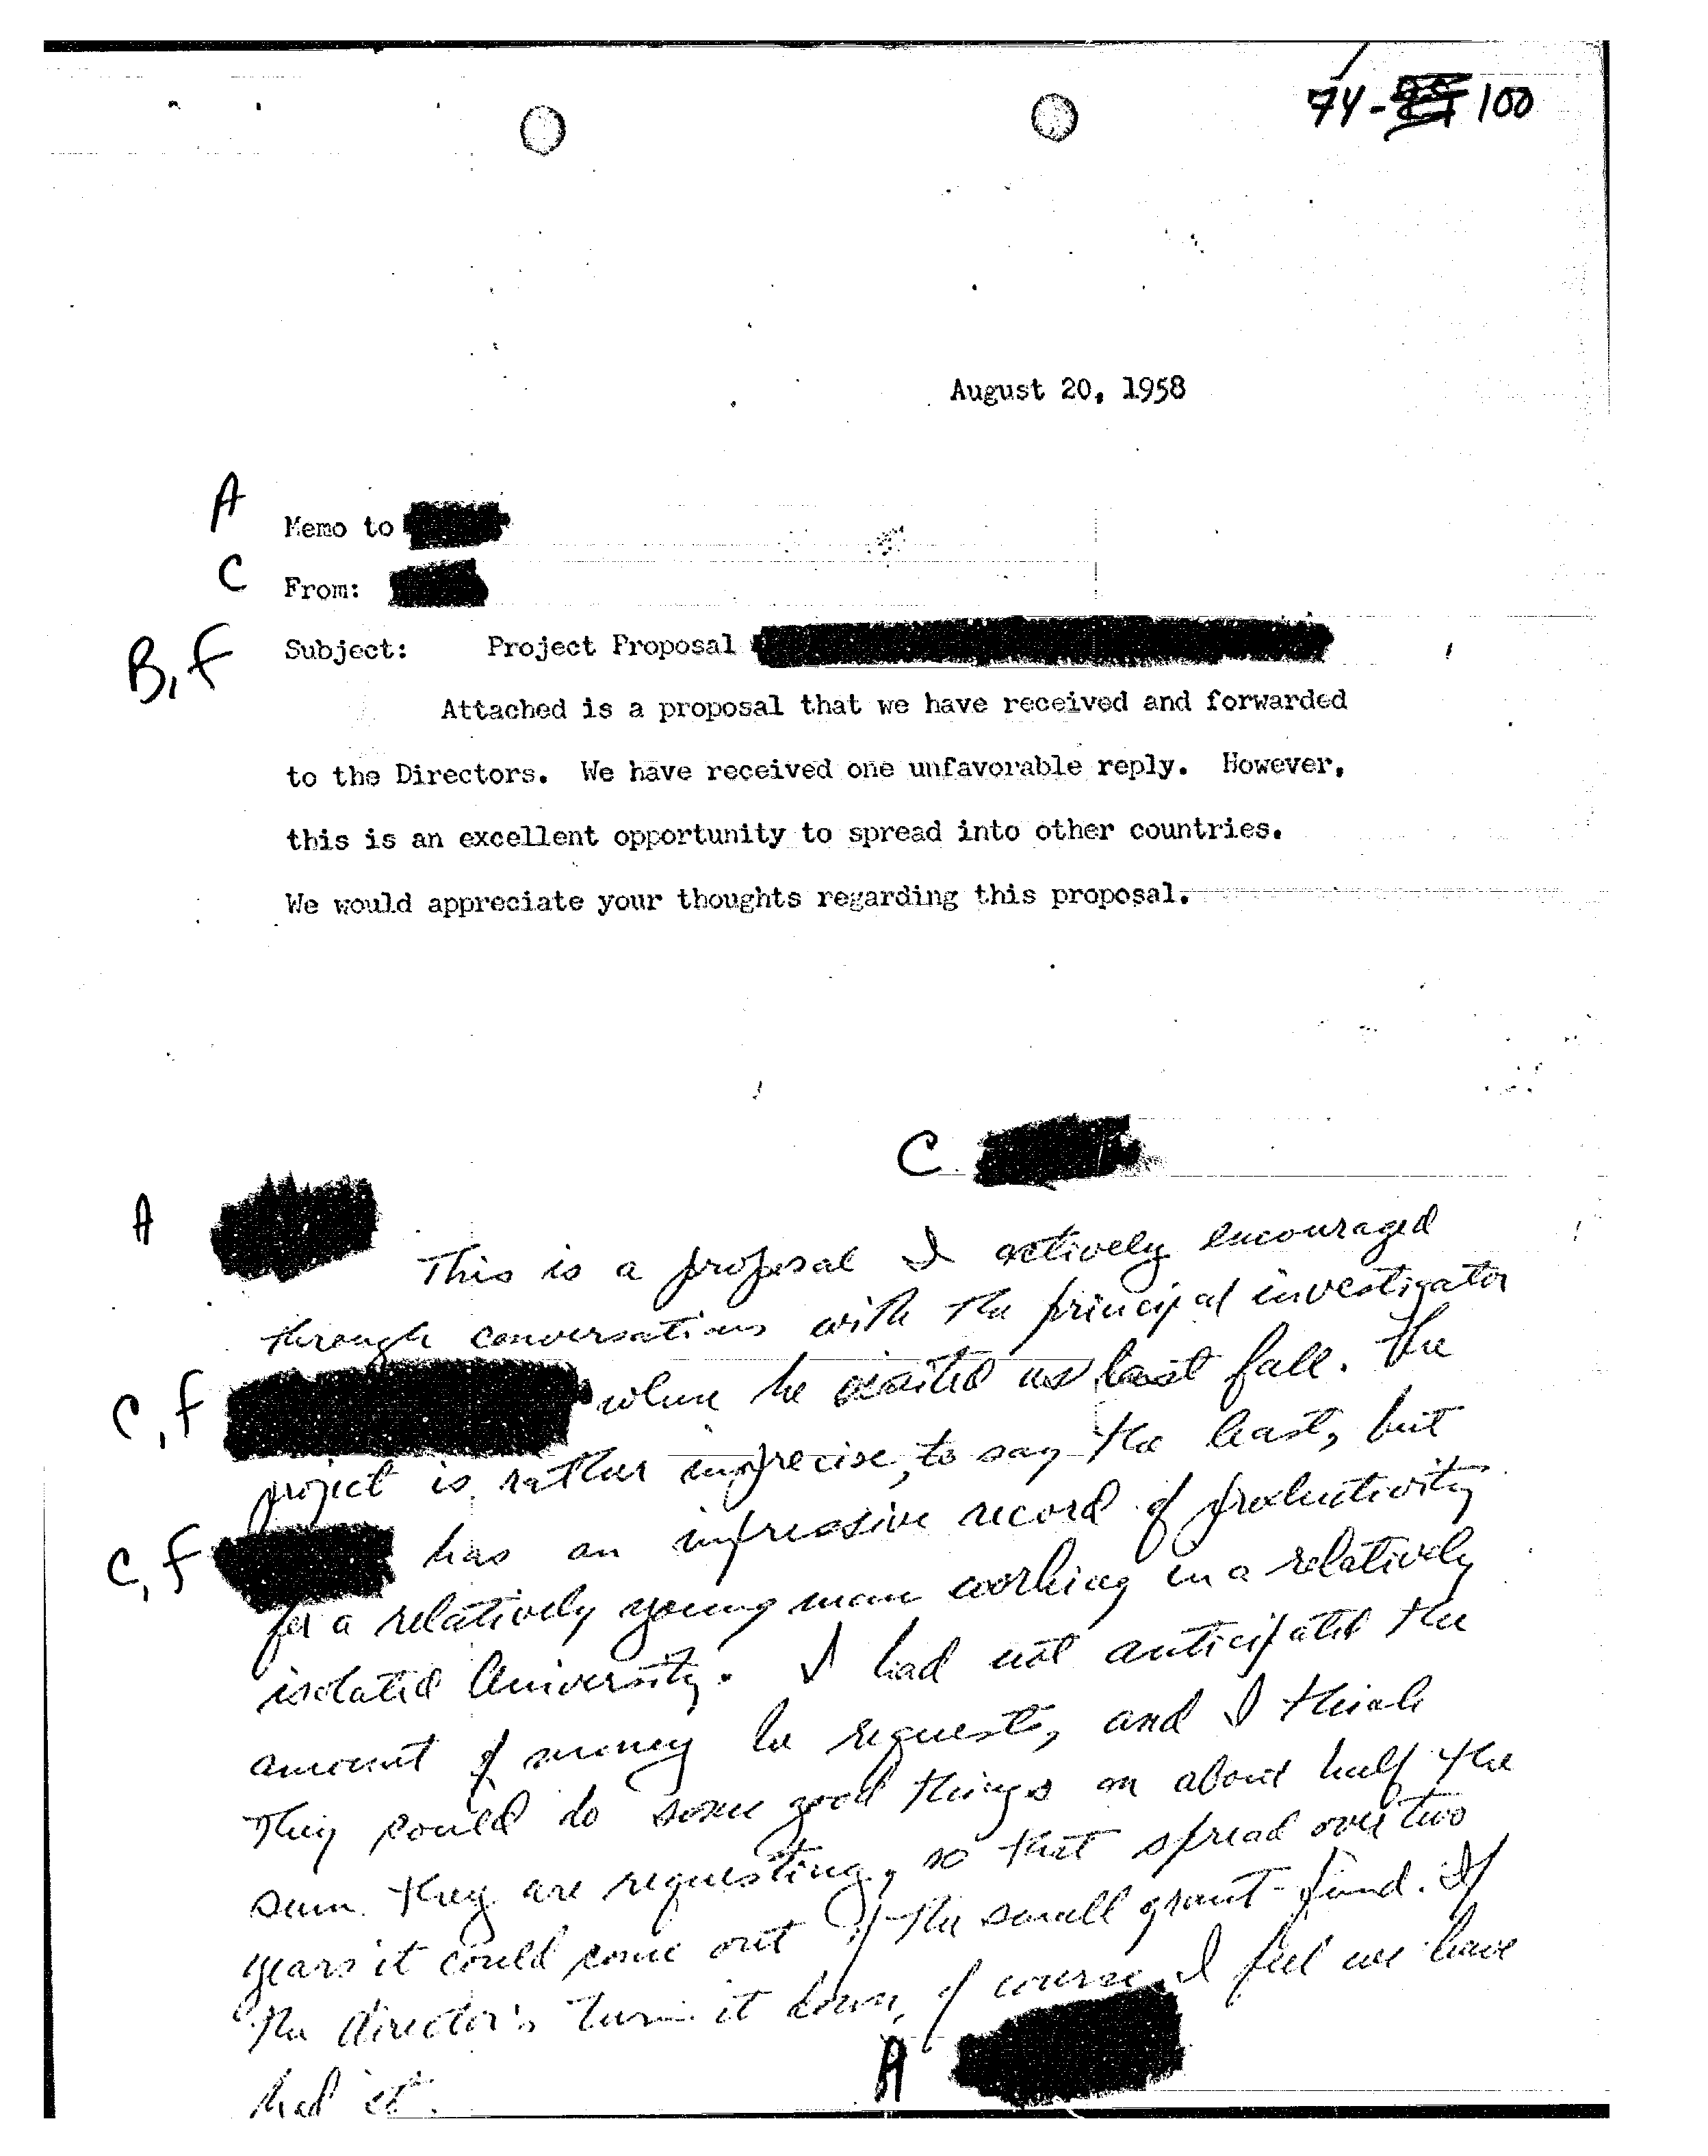 74- 100
August 20, 1958
A
Memo to
C
From:
B, F
Subject: Project Proposal
Attached is a proposal that we have received and forwarded
to the Directors. We have received one unfavorable reply. However,
this is an excellent opportunity to spread into other countries.
We would appreciate your thoughts regarding this proposal.
C
A
This is a proposal I actively encouraged
through conversations with the principal investigator
C, F when he visited us last fall. The
project is rather imprecise, to say the least, but
C, F has an impressive record of productivity
for a relatively young man working in a relatively
isolated University. I had not anticipated the
amount of money he requests, and I think
they could do some good things on about half the
sum they are requesting, so that spread over two
years it could come out of the small grant fund. If
the director's turn it down, of course, I feel we have
had it.
A